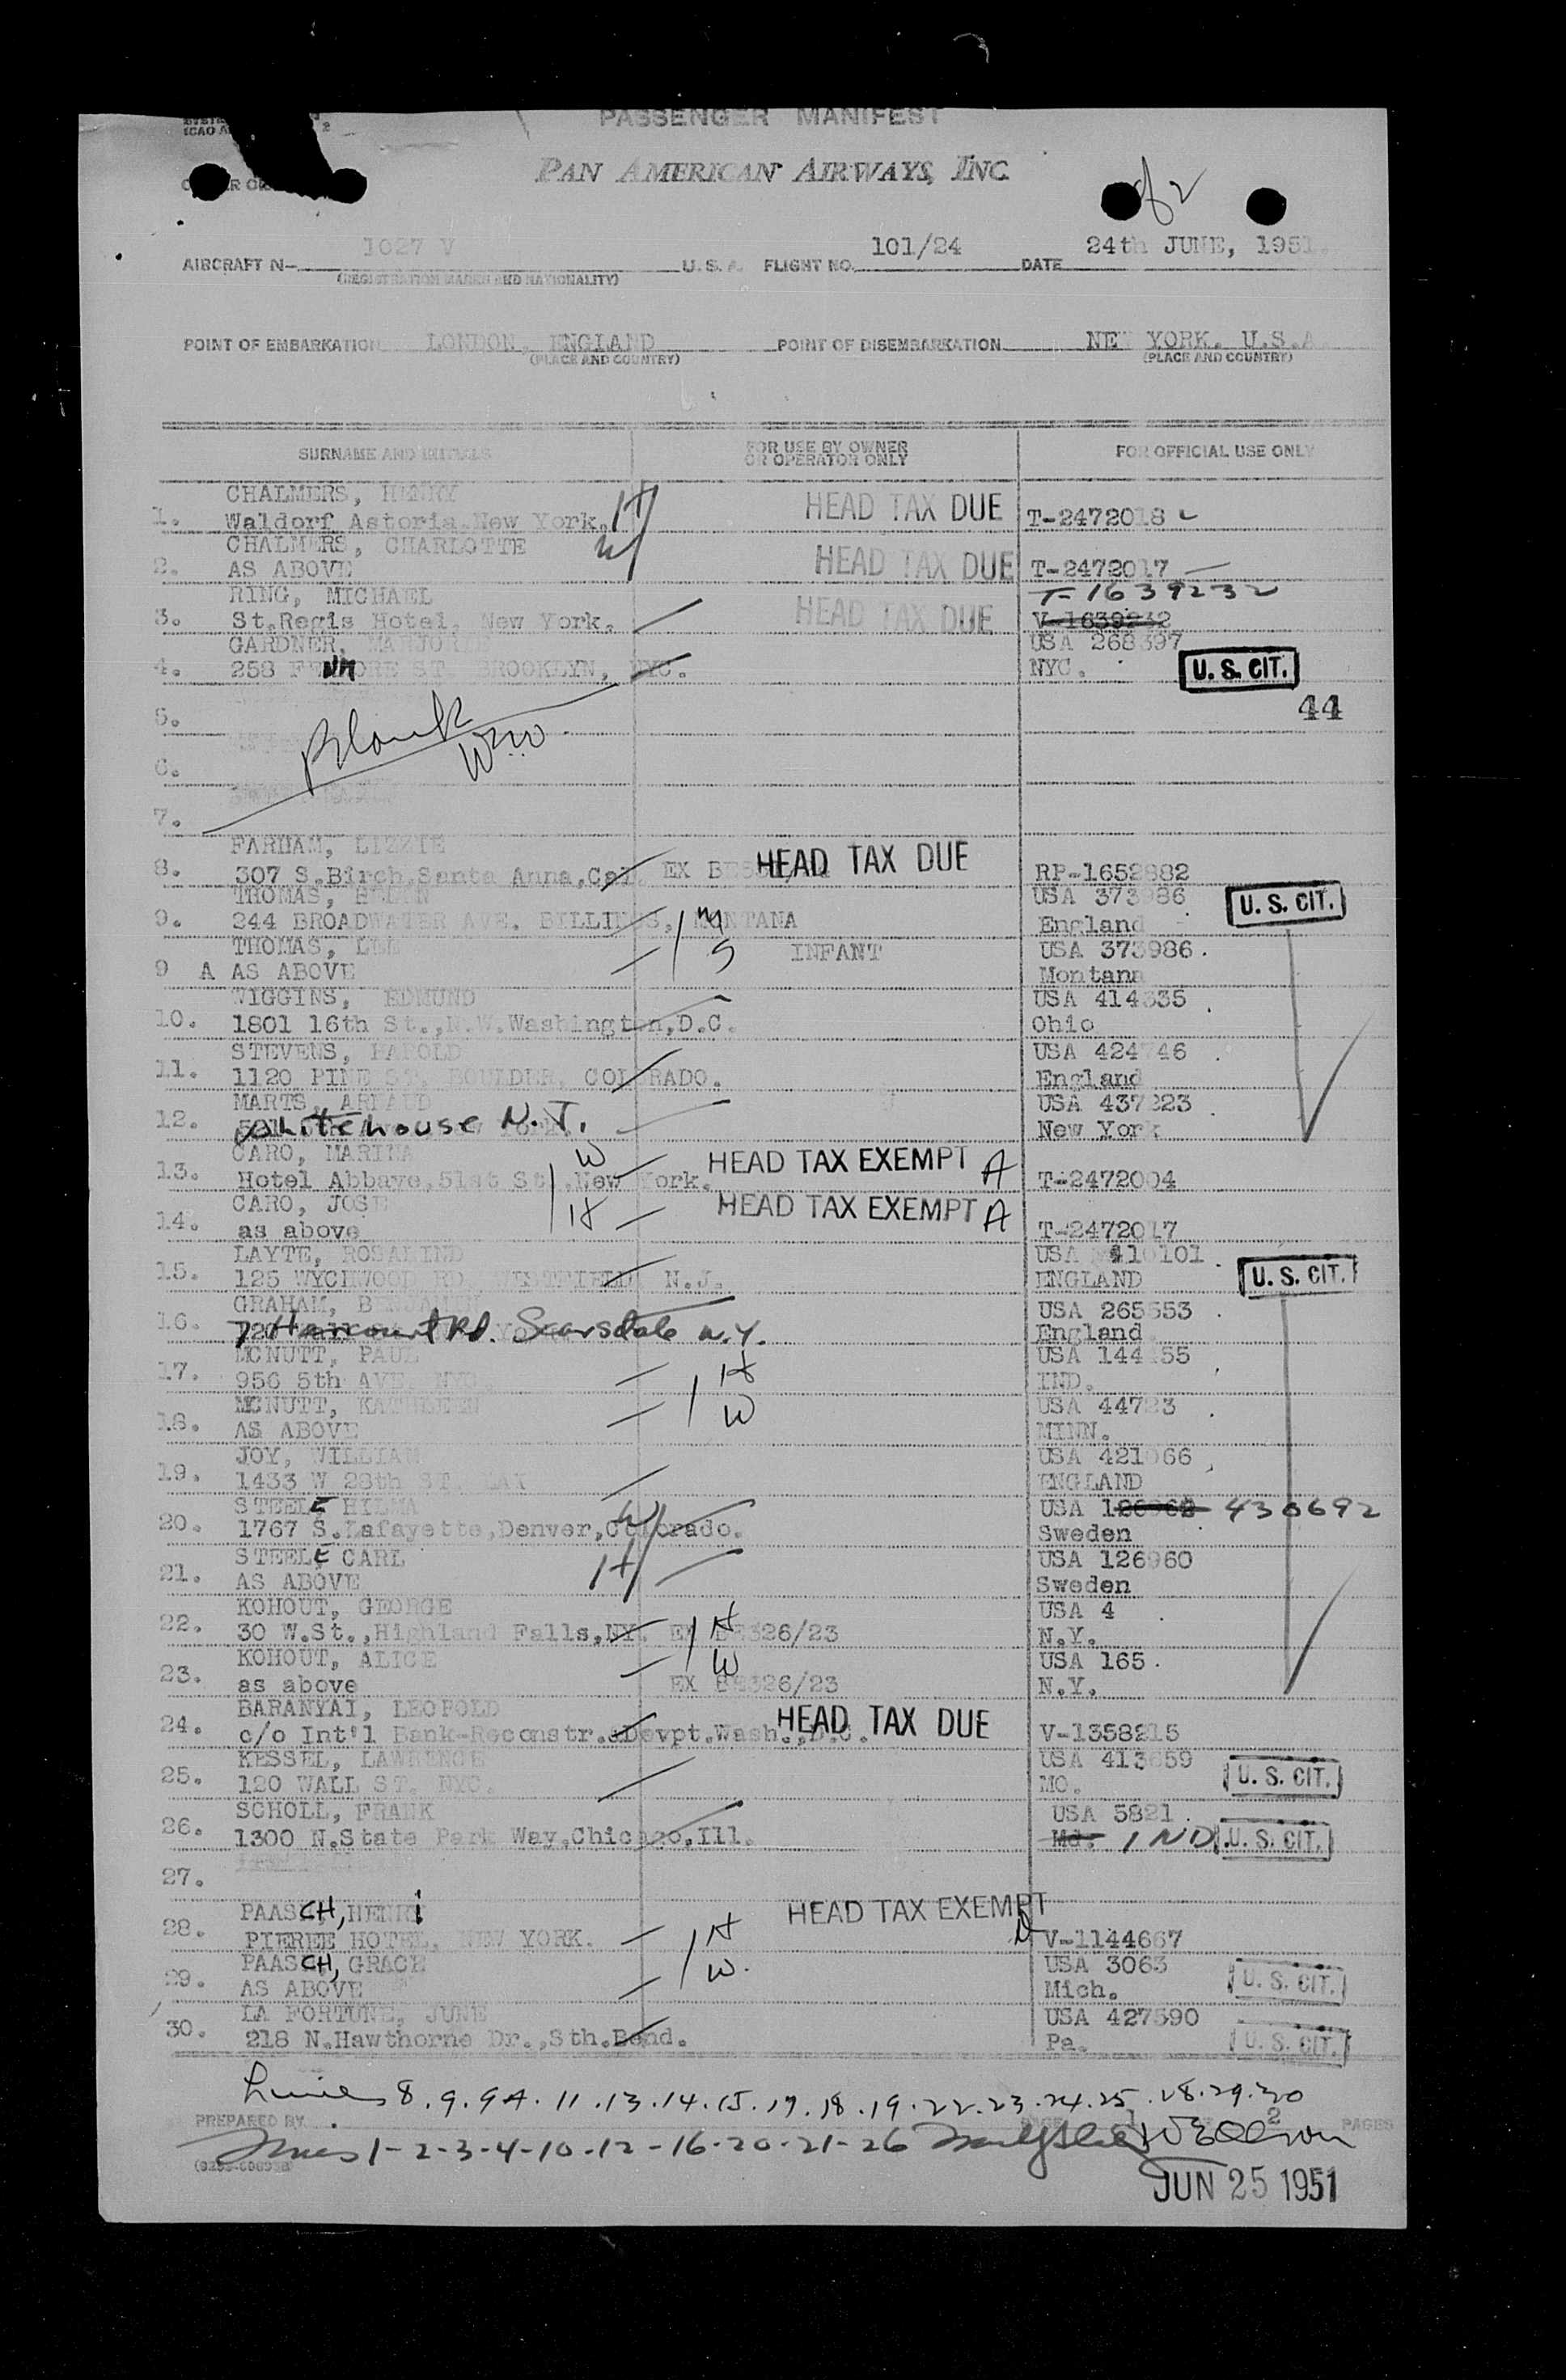 PASSENGER MANIFEST
PAN AMERICAN AIRWAYS, INC.
of 2
AIRCRAFT N- 1027 V U.S.A. FLIGHT NO. 101/24 DATE 24th JUNE, 1951.
(REGISTRATION MARKS AND NATIONALITY)
POINT OF EMBARKATION LONDON, ENGLAND POINT OF DISEMBARKATION NEW YORK. U.S.A.
(PLACE AND COUNTRY) (PLACE AND COUNTRY)
SURNAME AND INITIALS FOR USE BY OWNER OR OPERATOR ONLY FOR OFFICIAL USE ONLY
CHALMERS, HENRY H HEAD TAX DUE
1. Waldorf Astoria, New York. T-2472018
CHALMERS, CHARLOTTE W HEAD TAX DUE
2. AS ABOVE T-2472017
RING, MICHAEL HEAD TAX DUE T-1639232
3. St.Regis Hotel, New York. V-1639232
GARDNER, USA 268397
4. 258 ST. BROOKLYN, NYC. NYC. U.S. CIT.
44
5.
Blank
6.
7.
FARHAM, LIZZIE HEAD TAX DUE
8. 307 S.Birch,Santa Anna,Cal. EX RP-1652882
THOMAS, USA 373986 U.S. CIT.
9. 244 BROADWATER AVE. BILLINGS, MONTANA M England
THOMAS, LEE S INFANT USA 373986.
9 A AS ABOVE Montana
WIGGINS, EDMUND USA 414335
10. 1801 16th St.,N.W.Washington,D.C. Ohio
STEVENS, HAROLD USA 424746
11. 1120 PINE ST. BOULDER, COLORADO. England
MARTS, ARNAUD USA 437223
12. Whitehouse N.J. New York
CARO, MARINA W HEAD TAX EXEMPT A
13. Hotel Abbaye,51st St.,New York. T-2472004
CARO, JOSE H HEAD TAX EXEMPT A
14. as above T-2472017
LAYTE, ROSALIND USA 410101
15. 125 WYCHWOOD RD. WESTFIELD N.J. ENGLAND U.S. CIT.
GRAHAM, BENJAMIN USA 265653
16. 7 Harcourt Rd. Scarsdale N.Y. England
MCNUTT, PAUL H USA 144455
17. 956 5th AVE. NYC. IND.
MCNUTT, KATHLEEN W USA 44723
18. AS ABOVE MINN.
JOY, WILLIAM USA 421066
19. 1433 W 28th ST. LAX ENGLAND
STEELE HILMA W USA 430692
20. 1767 S.Lafayette,Denver,Colorado. Sweden
STEELE CARL H USA 126960
21. AS ABOVE Sweden
KOHOUT, GEORGE H USA 4
22. 30 W.St.,Highland Falls,NY. EX BE326/23 N.Y.
KOHOUT, ALICE W USA 165.
23. as above EX BE326/23 N.Y.
BARANYAI, LEOPOLD HEAD TAX DUE
24. c/o Int'l Bank-Reconstr.&Devpt.Wash.,D.C. V-1358215
KESSEL, LAWRENCE USA 413659
25. 120 WALL ST. NYC. MO. U.S. CIT.
SCHOLL, FRANK USA 5821
26. 1300 N.State Park Way,Chicago,Ill. Md. IND. U.S. CIT.
27.
PAASCH, HENRi H HEAD TAX EXEMPT
28. PIERRE HOTEL, NEW YORK. V-1144667
PAASCH, GRACE W. USA 3063
29. AS ABOVE Mich. U.S. CIT.
LA FORTUNE, JUNE USA 427590
30. 218 N.Hawthorne Dr.,Sth.Bend. Pa. U.S. CIT.
Lines 8.9.9A.11.13.14.15.17.18.19.22.23.24.25.28.29.30
PREPARED BY PAGE 1 OF 2 PAGES
Lines 1-2-3-4-10-12-16-20-21-26
JUN 25 1951